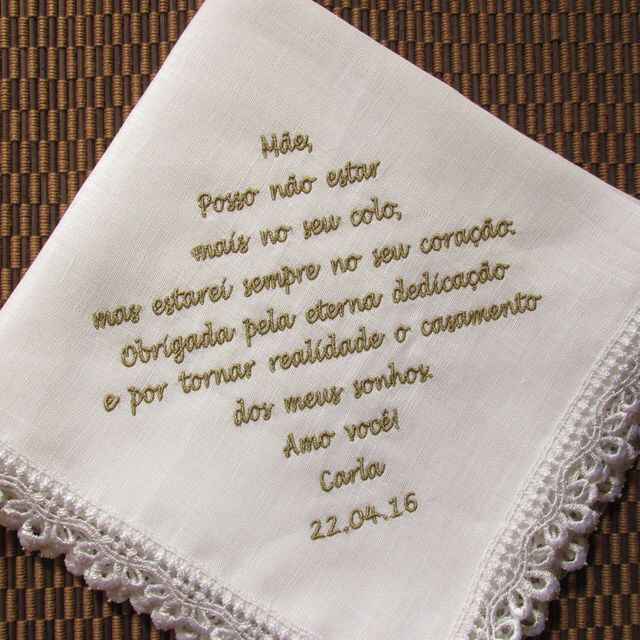 Mãe,
Posso não estar
mais no seu colo,
mas estarei sempre no seu coração.
Obrigada pela eterna dedicação
e por tornar realidade o casamento
dos meus sonhos.
Amo você!
Carla
22.04.16